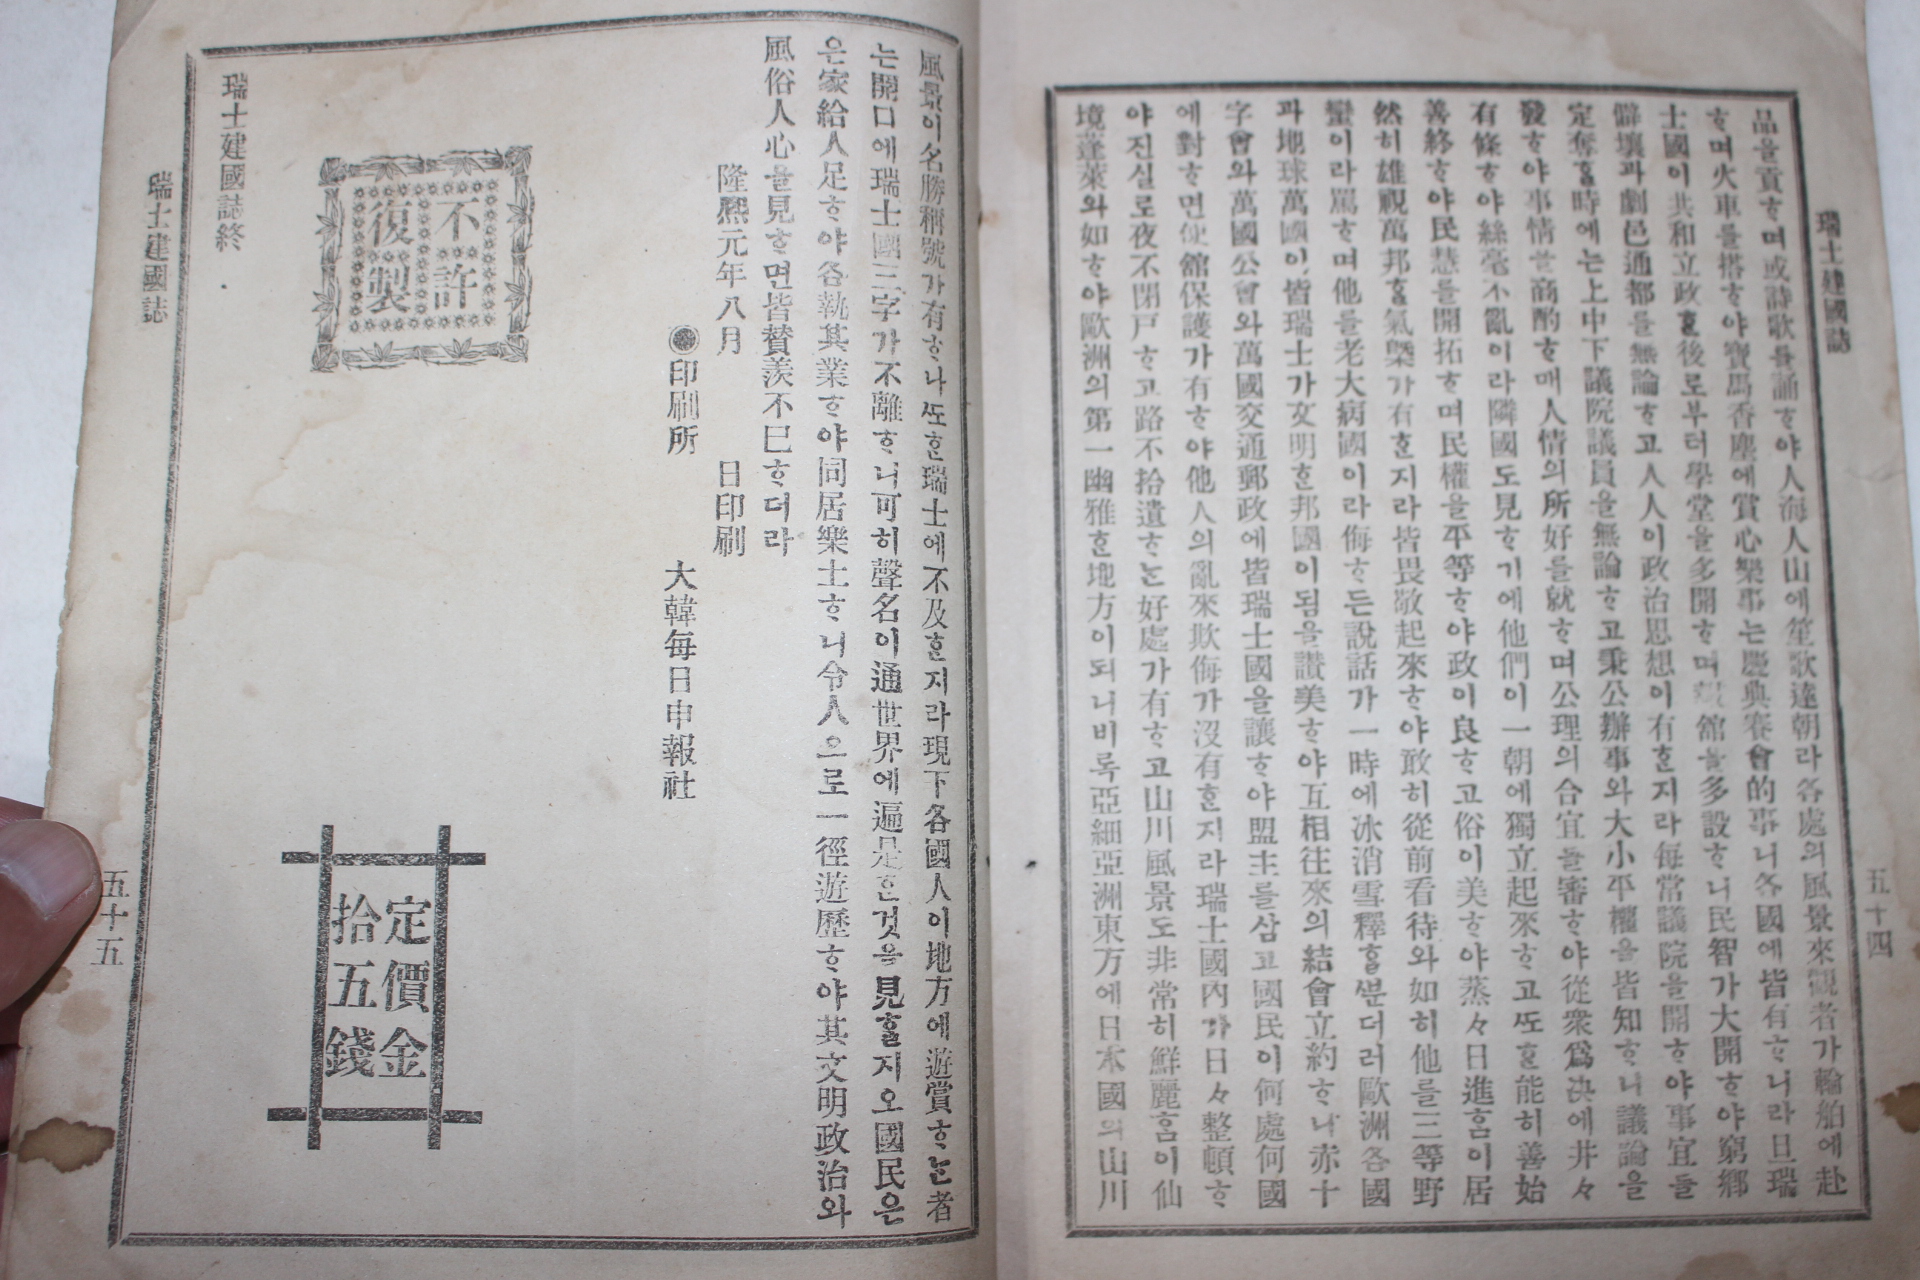 瑞士建國誌
五十四
品을貢ᄒᆞ며或詩歌를誦ᄒᆞ야人海人山에笙歌達朝라各處의風景來觀者가輪舶에赴
ᄒᆞ며火車를搭ᄒᆞ야寶馬香塵에賞心樂事는慶典賽會的事니各國에皆有ᄒᆞ니라且瑞
士國이共和立政ᄒᆞᆫ後로부터學堂을多開ᄒᆞ며 舘을多設ᄒᆞ니民智가大開ᄒᆞ야窮鄉
僻壤과劇邑通都를無論ᄒᆞ고人人이政治思想이有ᄒᆞᆫ지라每常議院을開ᄒᆞ야事宜를
定奪ᄒᆞᆯ時에는上中下議院議員을無論ᄒᆞ고秉公辦事와大小平權을皆知ᄒᆞ니議論을
發ᄒᆞ야事情을商酌ᄒᆞ매人情의所好를就ᄒᆞ며公理의合宜를審ᄒᆞ야從衆爲决에井々
有條ᄒᆞ야絲毫不亂이라隣國도見ᄒᆞ기에他們이一朝에獨立起來ᄒᆞ고ᄯᅩᄒᆞᆫ能히善始
善終ᄒᆞ야民慧를開拓ᄒᆞ며民權을平等ᄒᆞ야政이良ᄒᆞ고俗이美ᄒᆞ야蒸々日進ᄒᆞᆷ이居
然히雄視萬邦ᄒᆞᆯ氣槩가有ᄒᆞᆫ지라皆畏敬起來ᄒᆞ야敢히從前看待와如히他를三等野
蠻이라罵ᄒᆞ며他를老大病國이라侮ᄒᆞ든說話가一時에冰消雪釋ᄒᆞᆯᄲᅮᆫ더러歐洲各國
과地球萬國이皆瑞士가文明ᄒᆞᆫ邦國이됨을讃美ᄒᆞ야互相往來의結會立約ᄒᆞ니赤十
字會와萬國公會와萬國交通郵政에皆瑞士國을讓ᄒᆞ야盟主를삼고國民이何處何國
에對ᄒᆞ면便舘保護가有ᄒᆞ야他人의亂來欺侮가沒有ᄒᆞᆫ지라瑞士國內가日々整頓ᄒᆞ
야진실로夜不閉戶ᄒᆞ고路不拾遺ᄒᆞᄂᆞᆫ好處가有ᄒᆞ고山川風景도非常히鮮麗ᄒᆞᆷ이仙
境蓬萊와如ᄒᆞ야歐洲의第一幽雅ᄒᆞᆫ地方이되니비록亞細亞洲東方에日本國의山川
風景이名勝稱號가有ᄒᆞ나ᄯᅩᄒᆞᆫ瑞士에不及ᄒᆞᆫ지라現下各國人이地方에遊賞ᄒᆞᄂᆞᆫ者
는開口에瑞士國三字가不離ᄒᆞ니可히聲名이通世界에遍是ᄒᆞᆫ것을見ᄒᆞᆯ지오國民은
은家給人足ᄒᆞ야各執其業ᄒᆞ야同居樂土ᄒᆞ니令人으로一徑遊歷ᄒᆞ야其文明政治와
風俗人心을見ᄒᆞ면皆賛羨不已ᄒᆞ더라
隆熙元年八月 日印刷
印刷所 大韓每日申報社
不許
復製
定價金
拾五錢
瑞士建國誌終
瑞士建國誌
五十五